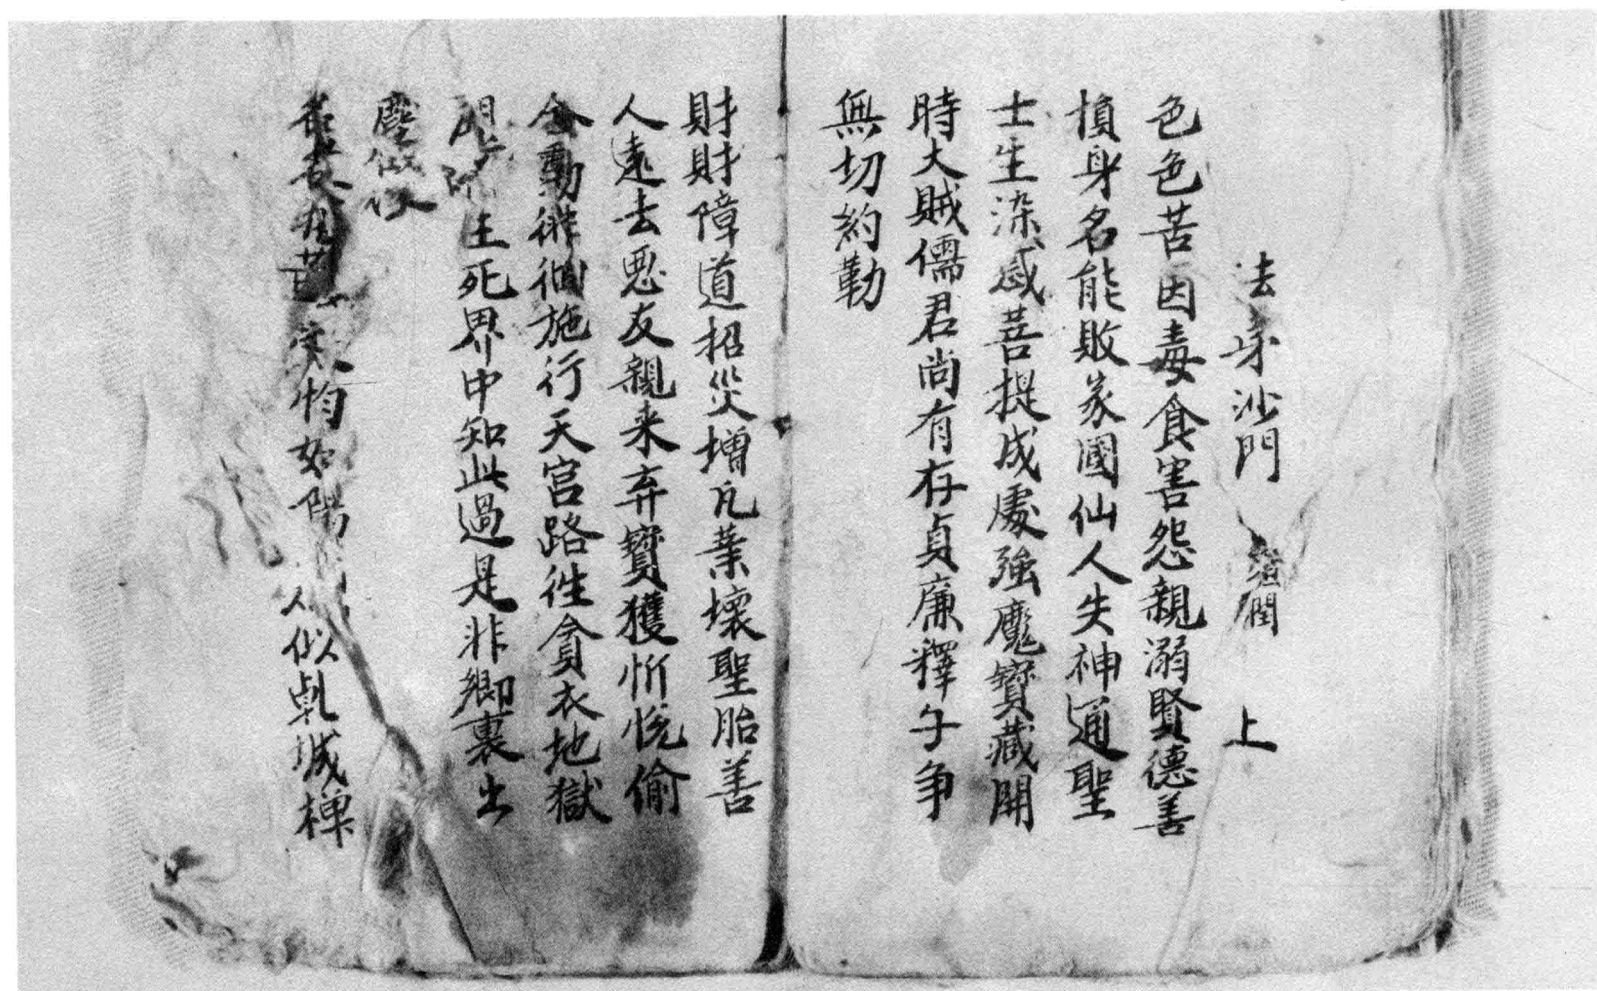 法身沙門 道潤 上
色色苦因毒食害怨親溺賢德善
損身名能敗家國仙人失神通聖
士生染惑菩提成處強魔寶藏開
時大賊儒君尚有存貞廉釋子争
無切約勒
財財障道招災增凡業壞聖胎善
人遠去惡友親来弃寶獲忻悅偷
金動徘徊施行天宮路徃貪衣地獄
生死界中知此過是非鄉裏出
塵
實恰如陽 人似乹城椑